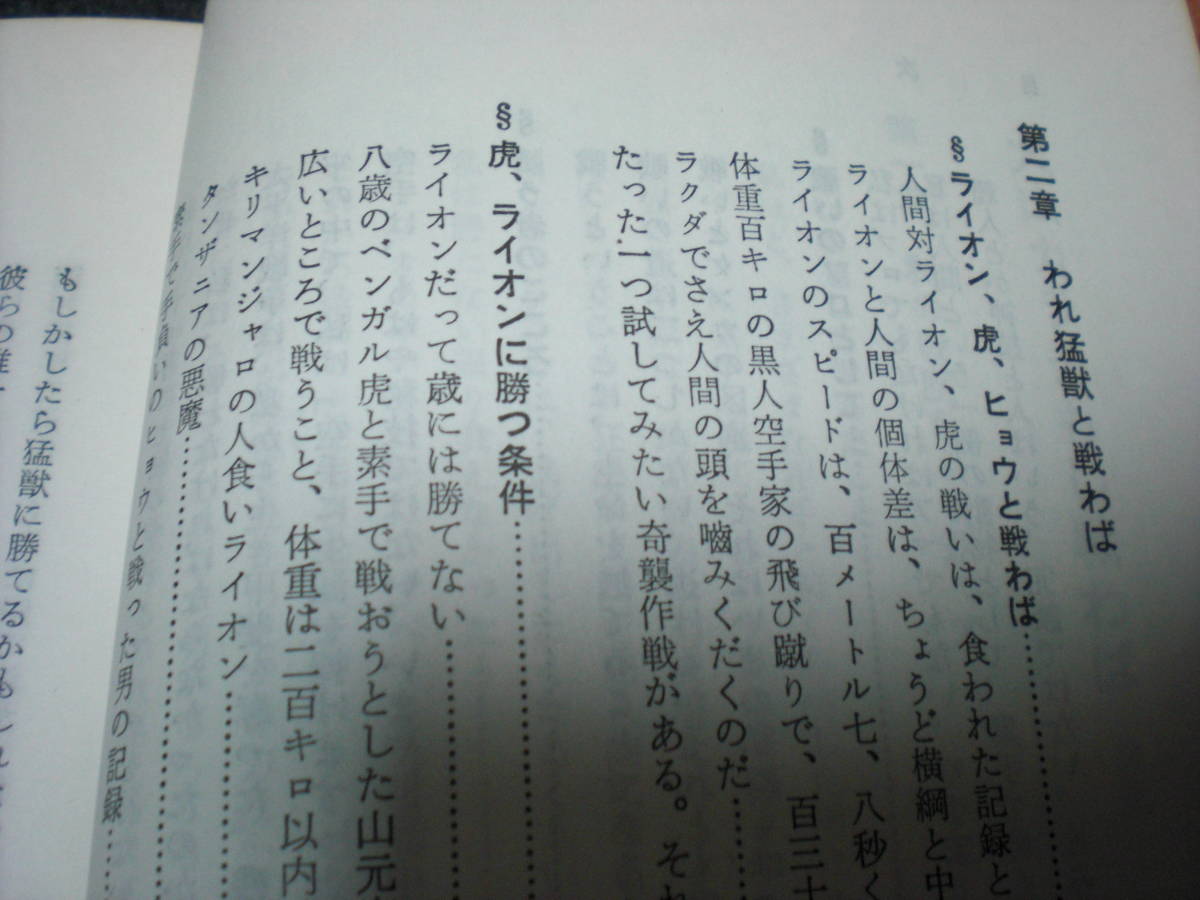 第二章 われ猛獣と戦わば
§ライオン、虎、ヒョウと戦わば…………
人間対ライオン、虎の戦いは、食われた記録と
ライオンと人間の個体差は、ちょうど横綱と中
ライオンのスピードは、百メートル七、八秒く
体重百キロの黒人空手家の飛び蹴りで、百二十
ラクダでさえ人間の頭を嚙みくだくのだ…………
たった一つ試してみたい奇襲作戦がある。それ
§虎、ライオンに勝つ条件…………
ライオンだって歳には勝てない…………
八歳のベンガル虎と素手で戦おうとした山元
広いところで戦うこと、体重は二百キロ以内
キリマンジャロの人食いライオン…………
タンザニアの悪魔…………
素手で手負いのヒョウと戦った男の記録…………
もしかしたら猛獣に勝てるかもしれ
彼らの唯一